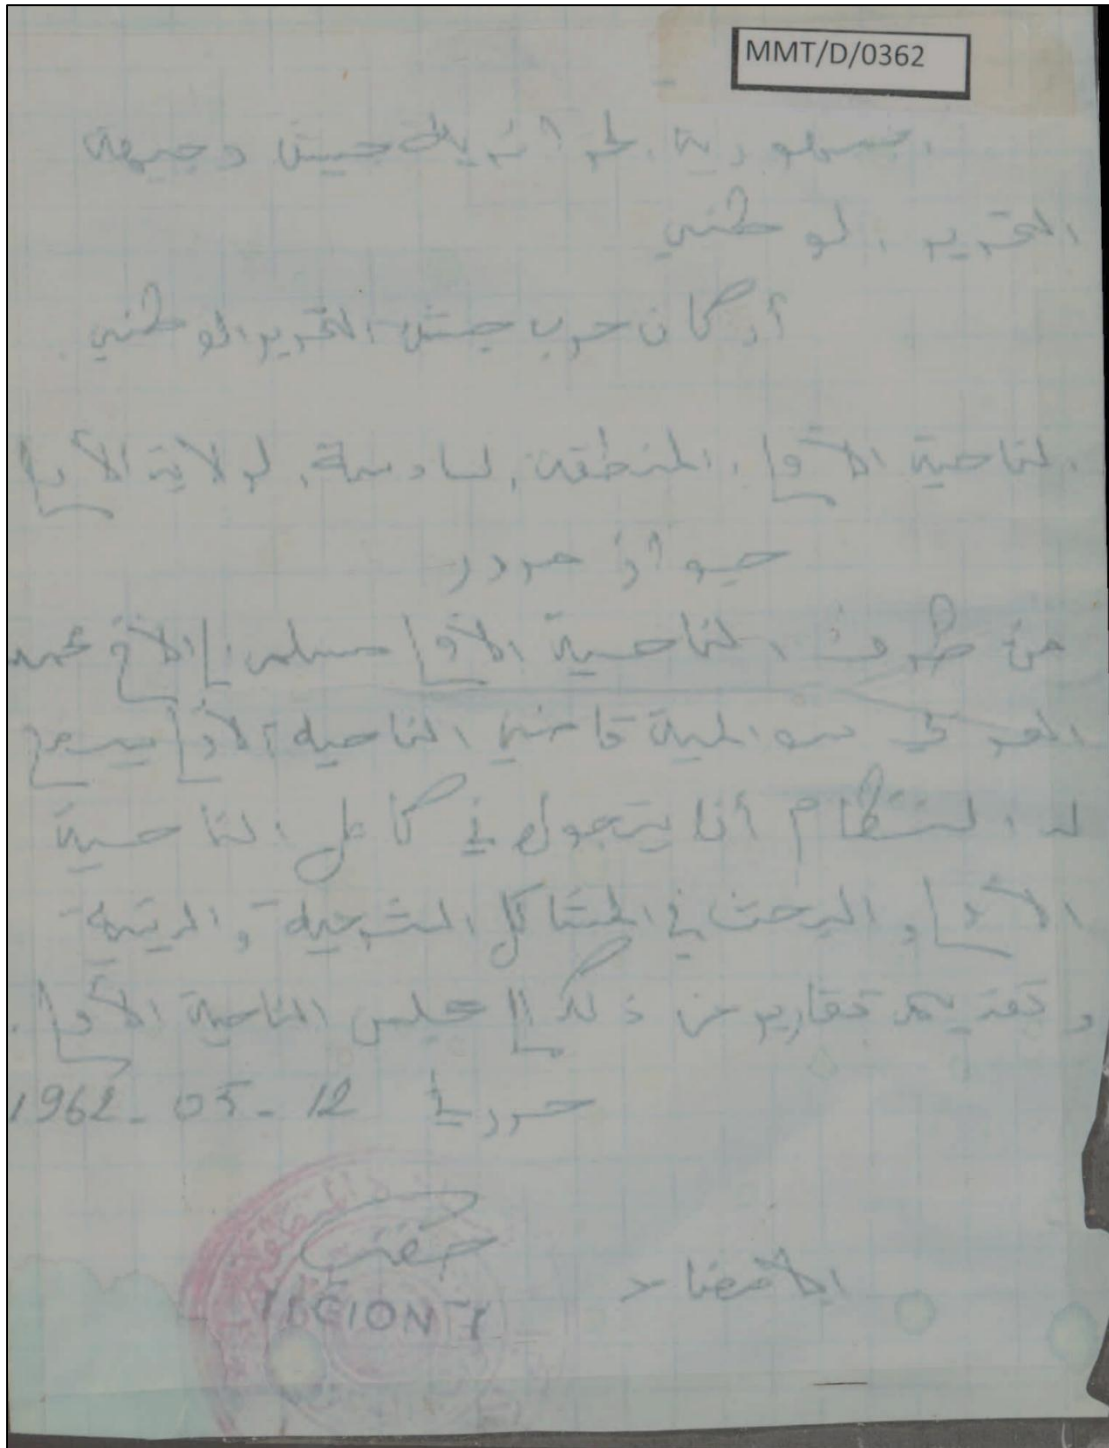 MMT/D/0362
الجمهورية الجزائرية جيش وجبهة
التحرير الوطني
أركان حرب جيش التحرير الوطني
الناحية الأولى المنطقة السادسة الولاية الأولى
جواز مرور
من طرف الناحية الأولى مسلم إلى الأخ محمد
العربي سوالمية قاضي الناحية الأولى يسمح
له النظام أن يتجول في كامل الناحية
الأولى والبحث في المشاكل الشرعية والدينية
وتقديم تقارير عن ذلك إلى مجلس الناحية الأولى.
حرر في 12 - 05 - 1962
الأمضاء
REGION I